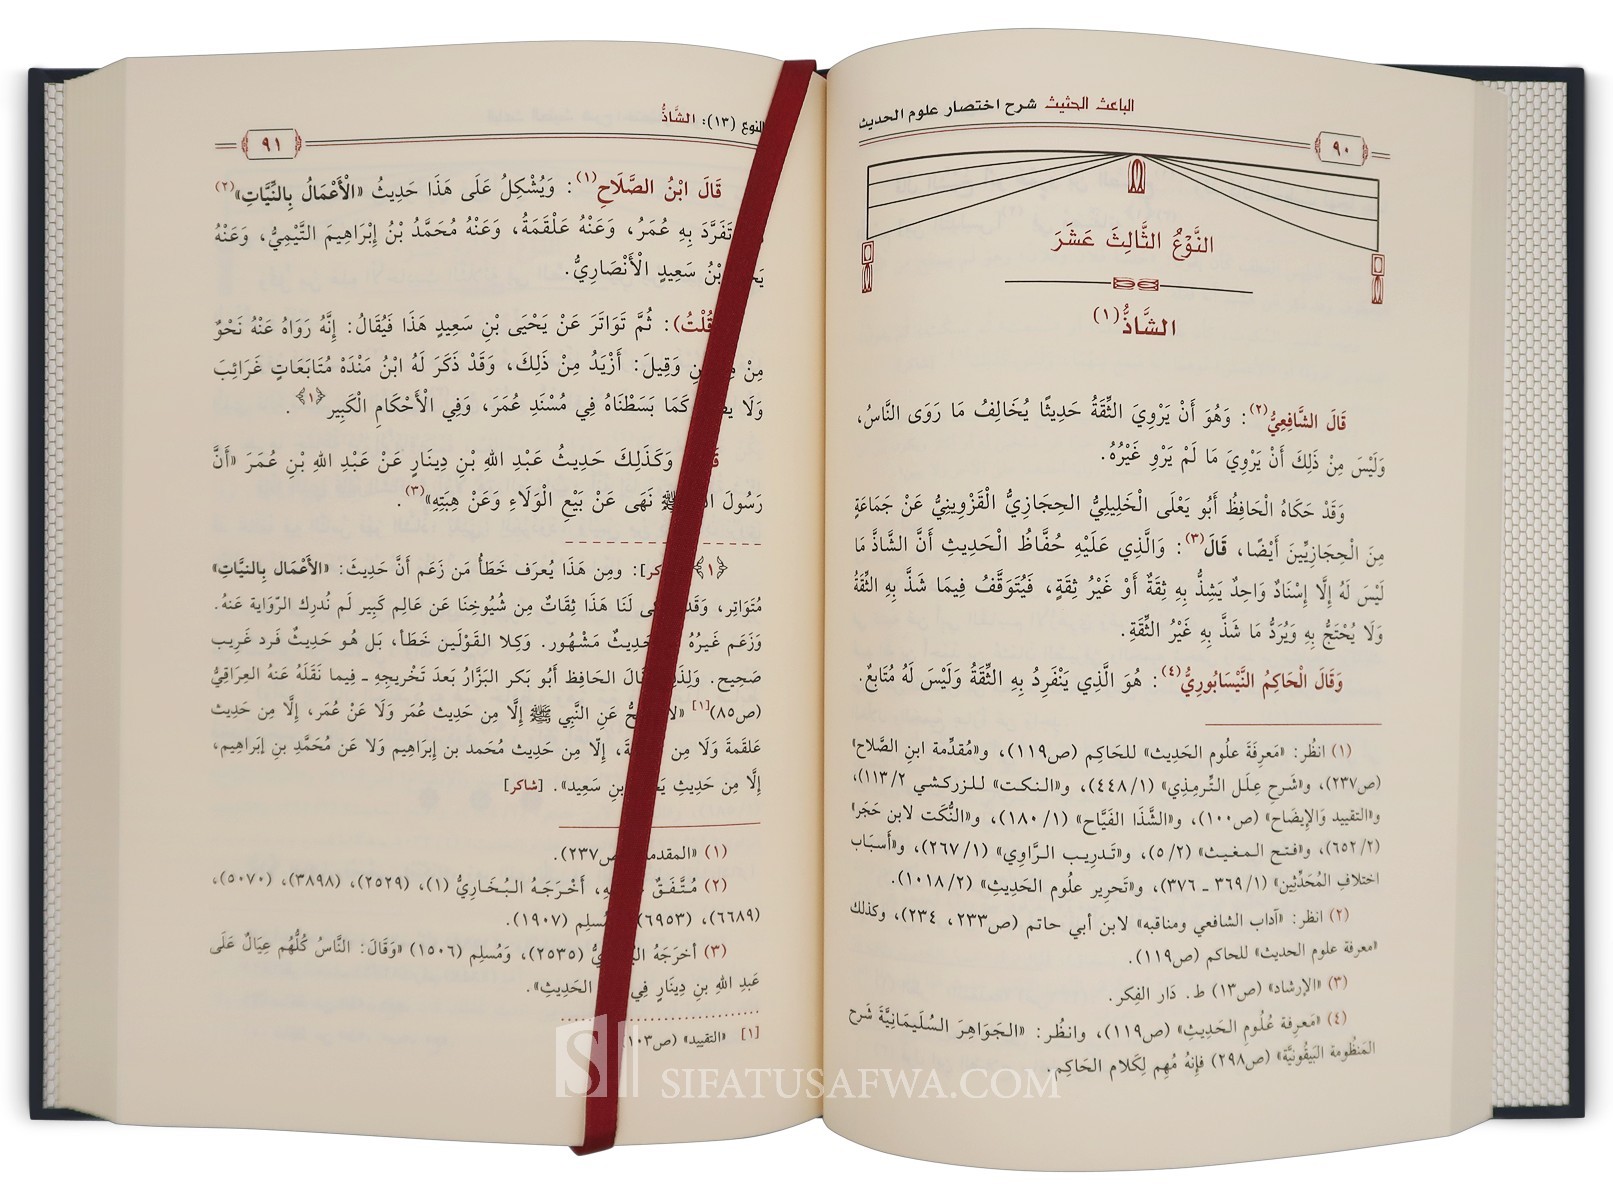 الباعث الحثيث شرح اختصار علوم الحديث
٩٠
النَّوْعُ الثَّالِثَ عَشَرَ
الشَّاذُّ(١)
قَالَ الشَّافِعِيُّ(٢): وَهُوَ أَنْ يَرْوِيَ الثِّقَةُ حَدِيثًا يُخَالِفُ مَا رَوَى النَّاسُ،
وَلَيْسَ مِنْ ذَلِكَ أَنْ يَرْوِيَ مَا لَمْ يَرْوِ غَيْرُهُ.
وَقَدْ حَكَاهُ الْحَافِظُ أَبُو يَعْلَى الْخَلِيلِيُّ الحِجَازِيُّ الْقَزْوِينِيُّ عَنْ جَمَاعَةٍ
مِنَ الْحِجَازِيِّينَ أَيْضًا، قَالَ(٣): وَالَّذِي عَلَيْهِ حُفَّاظُ الْحَدِيثِ أَنَّ الشَّاذَّ مَا
لَيْسَ لَهُ إِلَّا إِسْنَادٌ وَاحِدٌ يَشِذُّ بِهِ ثِقَةٌ أَوْ غَيْرُ ثِقَةٍ، فَيُتَوَقَّفُ فِيمَا شَذَّ بِهِ الثِّقَةُ
وَلَا يُحْتَجُّ بِهِ وَيُرَدُّ مَا شَذَّ بِهِ غَيْرُ الثِّقَةِ.
وَقَالَ الْحَاكِمُ النَّيْسَابُورِيُّ(٤): هُوَ الَّذِي يَنْفَرِدُ بِهِ الثِّقَةُ وَلَيْسَ لَهُ مُتَابِعٌ.
(١) انظُر: «مَعرِفَة علُوم الحَديث» للحَاكِم (ص١١٩)، و«مُقدِّمة ابنِ الصَّلاح»
(ص٢٣٧)، و«شَرح عِلَل التِّرمِذي» (٤٤٨/١)، و«النكت» للزركشي ١١٣/٢)،
و«التقييد وَالإيضَاح» (ص١٠٠)، و«الشَّذَا الفَيَّاح» (١٨٠/١)، و«النُّكَت لابن حَجَر»
(٦٥٢/٢)، و«فتح المغيث» (٥/٢)، و«تَدرِيب الرَّاوِي» (٢٦٧/١)، و«أَسبَاب
اختلافِ المُحَدِّثِين» (٣٦٩/١ ـ ٣٧٦)، و«تَحرِير علُوم الحَدِيث» (١٠١٨/٢).
(٢) انظر: «آداب الشافعي ومناقبه» لابن أبي حاتم (ص٢٣٣، ٢٣٤)، وكذلك
«معرفة علوم الحديث» للحاكم (ص١١٩).
(٣) «الإرشاد» (ص١٣) ط. دَار الفِكر.
(٤) «مَعرِفة عُلُومِ الحَدِيث» (ص١١٩)، وانظُر: «الجَوَاهِرَ السُلَيمَانِيَّةَ شَرح
المَنظُومة البَيقُونِيَّة» (ص٢٩٨) فإنهُ مُهِم لِكَلام الحَاكِم.
النوع (١٣): الشَّاذُّ
٩١
قَالَ ابْنُ الصَّلَاحِ(١): وَيُشْكِلُ عَلَى هَذَا حَدِيثُ «الْأَعْمَالُ بِالنِّيَّاتِ»(٢)
تَفَرَّدَ بِهِ عُمَرُ، وَعَنْهُ عَلْقَمَةُ، وَعَنْهُ مُحَمَّدُ بْنُ إِبْرَاهِيمَ التَّيْمِيُّ، وَعَنْهُ
بْنُ سَعِيدٍ الْأَنْصَارِيُّ.
(قُلْتُ): ثُمَّ تَوَاتَرَ عَنْ يَحْيَى بْنِ سَعِيدٍ هَذَا فَيُقَالُ: إِنَّهُ رَوَاهُ عَنْهُ نَحْوٌ
مِنْ وَقِيلَ: أَزْيَدُ مِنْ ذَلِكَ، وَقَدْ ذَكَرَ لَهُ ابْنُ مَنْدَهْ مُتَابَعَاتٍ غَرَائِبَ
وَلَا كَمَا بَسَطْنَاهُ فِي مُسْنَدِ عُمَرَ، وَفِي الْأَحْكَامِ الْكَبِيرِ﴿١﴾.
وَكَذَلِكَ حَدِيثُ عَبْدِ اللهِ بْنِ دِينَارٍ عَنْ عَبْدِ اللهِ بْنِ عُمَرَ «أَنَّ
رَسُولَ ﷺ نَهَى عَنْ بَيْعِ الْوَلَاءِ وَعَنْ هِبَتِهِ»(٣).
﴿١﴾ [شاكر]: ومِن هَذَا يُعرَف خَطَأُ مَن زَعَم أَنَّ حَدِيثَ: «الأَعْمَال بِالنيَّاتِ»
مُتَوَاتِر، لَنَا هَذَا ثِقَاتٌ مِن شُيُوخِنَا عَن عَالِم كَبِير لَم نُدرِك الرّوَاية عَنهُ.
وَزَعَم غَيرُهُ حَدِيثٌ مَشْهُور. وَكِلا القَوْلَين خَطَأ، بَل هُو حَدِيثٌ فَرد غَرِيب
صَحِيح. قَالَ الحَافِظ أَبُو بَكر البَزَّارُ بَعدَ تَخْريجِهِ ـ فِيمَا نَقَلَهُ عَنهُ العِرَاقِيُّ
(ص٨٥)[١] عَنِ النَّبِي ﷺ إِلَّا مِن حَدِيث عُمَر وَلَا عَنْ عُمَر، إِلَّا مِن حَدِيث
عَلقَمَة وَلَا مِن ، إِلّا مِن حَدِيث مُحَمد بن إِبْرَاهِيم وَلَا عَن مُحَمَّدِ بنِ إِبرَاهِيم،
إِلَّا مِن حَدِيثِ بنِ سَعِيد». [شاكر]
(١) «المقدمة» ص٢٣٧).
(٢) مُتَّفَقٌ ، أَخْرَجَهُ البُخَارِيُّ (١)، (٢٥٢٩)، (٣٨٩٨)، (٥٠٧٠)،
(٦٦٨٩)، (٦٩٥٣) مُسلِم (١٩٠٧).
(٣) أخرَجَهُ (٢٥٣٥)، وَمُسلِم (١٥٠٦) «وَقَالَ: النَّاسُ كُلُّهُم عِيَالٌ عَلَى
عَبدِ اللهِ بنِ دِينَارٍ فِي الحَدِيثِ».
[١] «التقييد» (ص١٠٣)
SIFATUSAFWA.COM